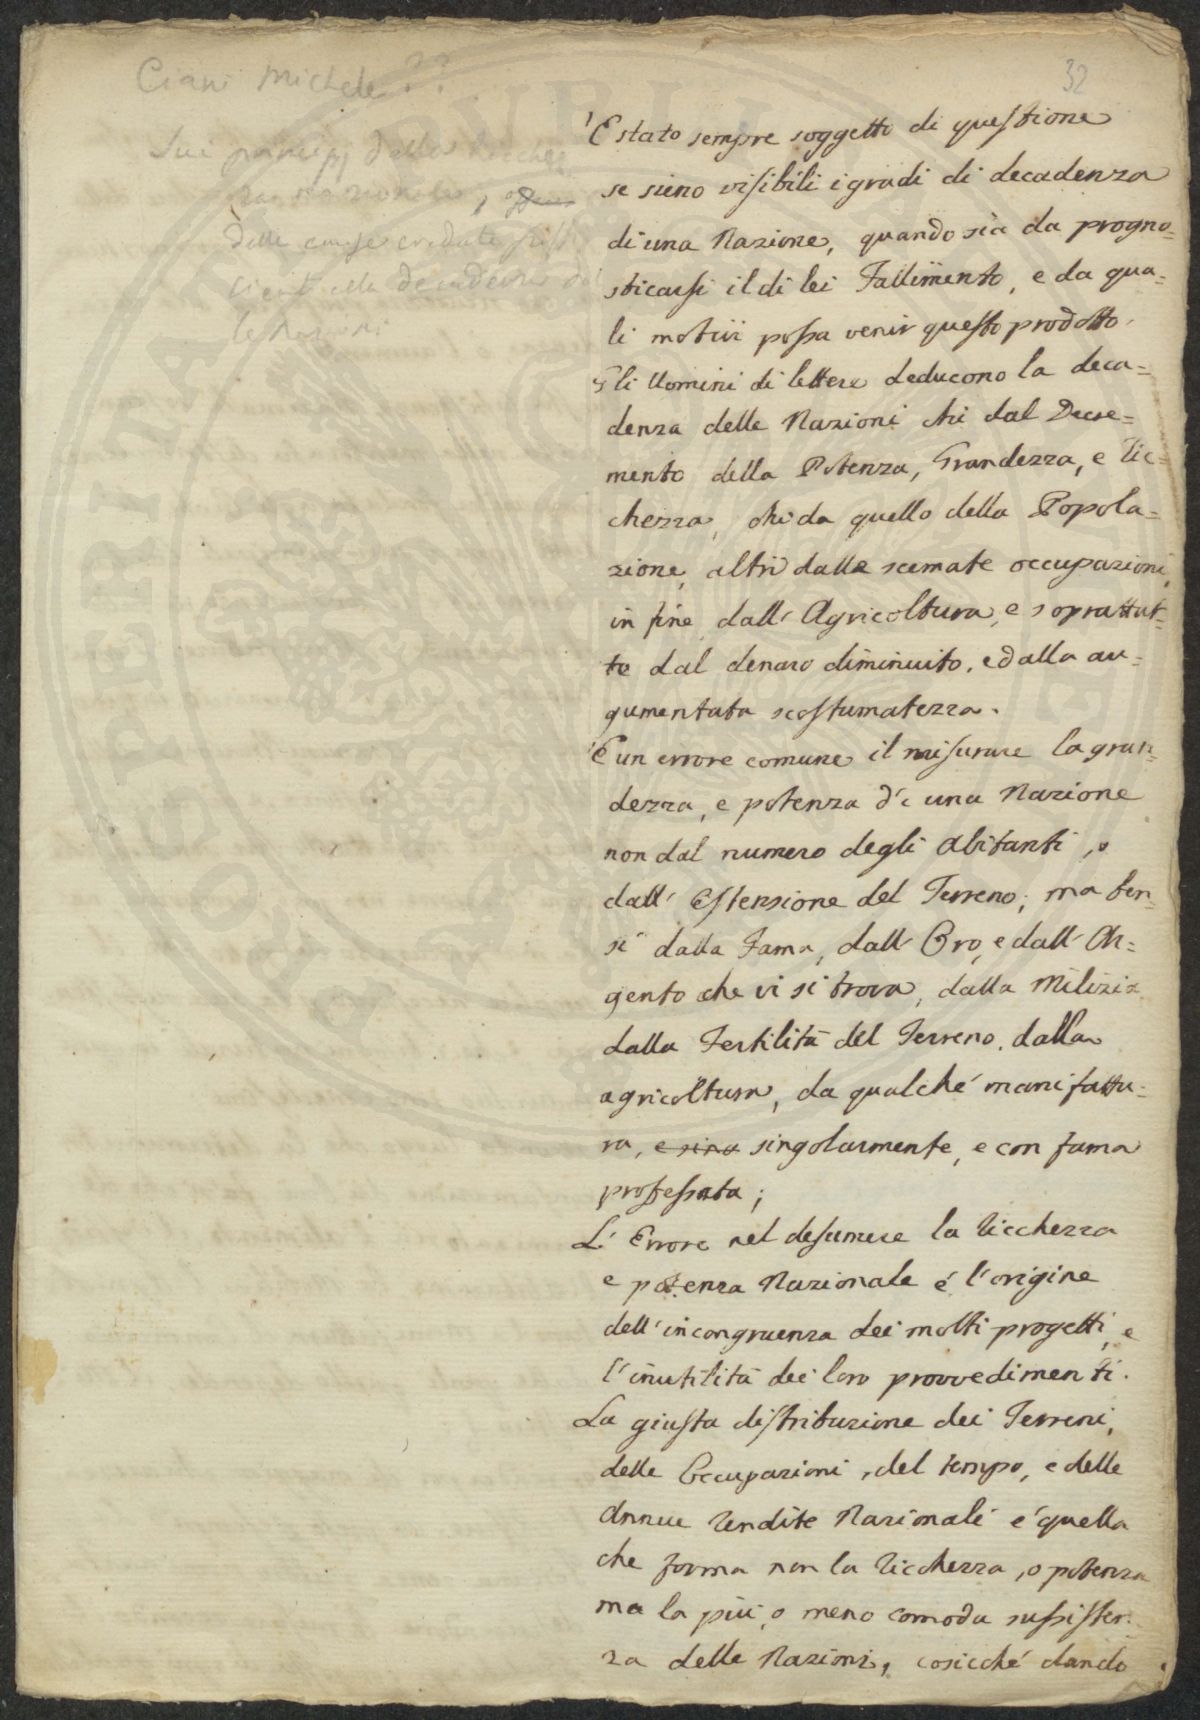 32
Ciani Michele ??
Sui principj della ricchez
za nazionale, o
Delle cause credute suffi
cienti alla decadenza del
le Nazioni
'E stato sempre soggetto di questione
se sieno visibili i gradi di decadenza
di una Nazione, quando sia da progno=
sticarsi il di lei Fallimento, e da qua=
li motivi possa venir questo prodotto.
Gli Uomini di lettere deducono la deca=
denza delle Nazioni chi dal Decre=
mento della Potenza, Grandezza, e Ric=
chezza, chi da quello della Popola=
zione, altri dalle scemate occupazioni,
in fine dall' Agricoltura, e soprattut=
to dal denaro diminuito, e dalla au=
gumentata scostumatezza.
'E un errore comune il misurare la gran=
dezza, e potenza di una Nazione
non dal numero degli Abitanti, o
dall' Estensione del Terreno; ma ben=
si dalla Fama, dall' Oro, e dall' Ar=
gento che vi si trova, dalla Milizia
dalla Fertilità del Terreno, dalla
agricoltura, da qualché manifattu=
ra, e sino singolarmente, e con fama
professata;
L' Errore nel desumere la Ricchezza
e potenza Nazionale é l'origine
dell'incongruenza dei molti progetti, e
l'inutilità dei loro provvedimenti.
La giusta distribuzione dei Terreni,
delle Occupazioni, del tempo, e delle
Annue Rendite Nazionali é quella
che forma non la Ricchezza, o potenza
ma la più, o meno comoda sussisten=
za delle Nazioni, cosicché dando